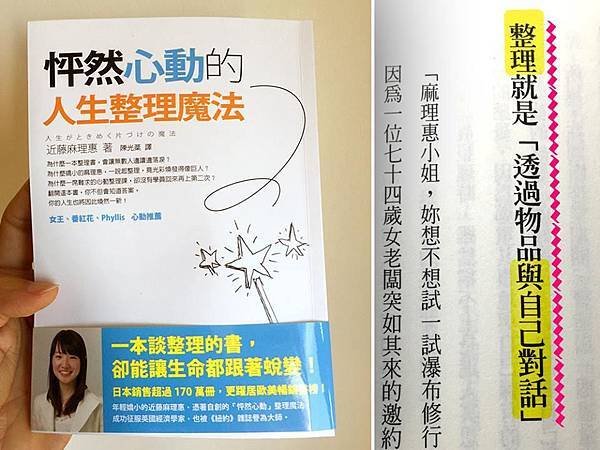 怦然心動的
人生整理魔法
人生がときめく片づけの魔法
近藤麻理惠 著 陳光棻 譯
為什麼一本整理書，會讓無數人邊讀邊落淚？
為什麼嬌小的麻理惠，一說起整理，竟光彩煥發得像巨人？
為什麼一席難求的心動整理課，卻沒有學員回來再上第二次？
翻開這本書，你不但會知道答案，
你的人生也將因此煥然一新！
女王、番紅花、Phyllis 心動推薦
一本談整理的書，
卻能讓生命都跟著蛻變！
日本銷售超過 170 萬冊，更躍居歐美暢銷榜！
年輕嬌小的近藤麻理惠，憑著自創的「怦然心動」整理魔法
成功征服英國經濟學家，也被《紐約》雜誌譽為大師。
整理就是「透過物品與自己對話」
「麻理惠小姐，妳想不想試一試瀑布修行
因為一位七十四歲女老闆突如其來的邀約